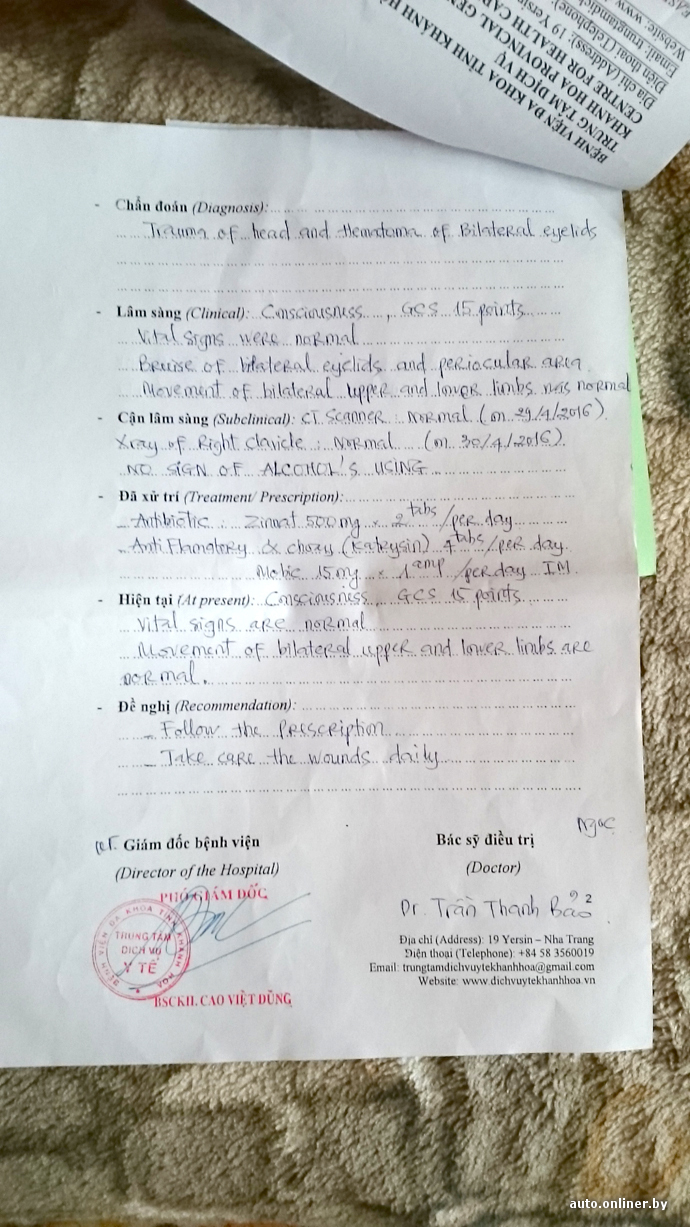 BỆNH VIỆN ĐA KHOA TỈNH KHÁNH HÒA
TRUNG TÂM DỊCH VỤ
KHANH HOA PROVINCIAL GEN
CENTRE FOR HEALTH CAR
Địa chỉ (Address): 19 Yersin
Điện thoại (Telephone):
Email: trungtamdich
Website: www.
- Chẩn đoán (Diagnosis):
Trauma of head and Hematoma of Bilateral eyelids
- Lâm sàng (Clinical): Consciousness, GCS 15 points
Vital signs were normal
Bruise of bilateral eyelids and periocular area
Movement of bilateral upper and lower limbs was normal
- Cận lâm sàng (Subclinical): CT Scanner: Normal (on 29/4/2016)
Xray of Right clavicle: Normal (on 30/4/2016)
NO SIGN OF ALCOHOL'S USING
- Đã xử trí (Treatment/ Prescription):
- Antibiotic: Zinnat 500mg x 2 tabs/per day
- Anti Flamatory α chozy (Katrysin) 4 tabs/per day
Mobic 15mg x 1 amp/per day IM
- Hiện tại (At present): Consciousness, GCS 15 points
Vital signs are normal
- Movement of bilateral upper and lower limbs are
normal.
- Đề nghị (Recommendation):
- Follow the Prescription
- Take care the wounds daily
Ngọc
Giám đốc bệnh viện
(Director of the Hospital)
PHÓ GIÁM ĐỐC
BỆNH VIỆN ĐA KHOA TỈNH KHÁNH HÒA
TRUNG TÂM
DỊCH VỤ
Y TẾ
BSCKII. CAO VIỆT DŨNG
Bác sỹ điều trị
(Doctor)
Dr. Trần Thanh Bảo
Địa chỉ (Address): 19 Yersin – Nha Trang
Điện thoại (Telephone): +84 58 3560019
Email: trungtamdichvuytekhanhhoa@gmail.com
Website: www.dichvuytekhanhhoa.vn
auto.onliner.by